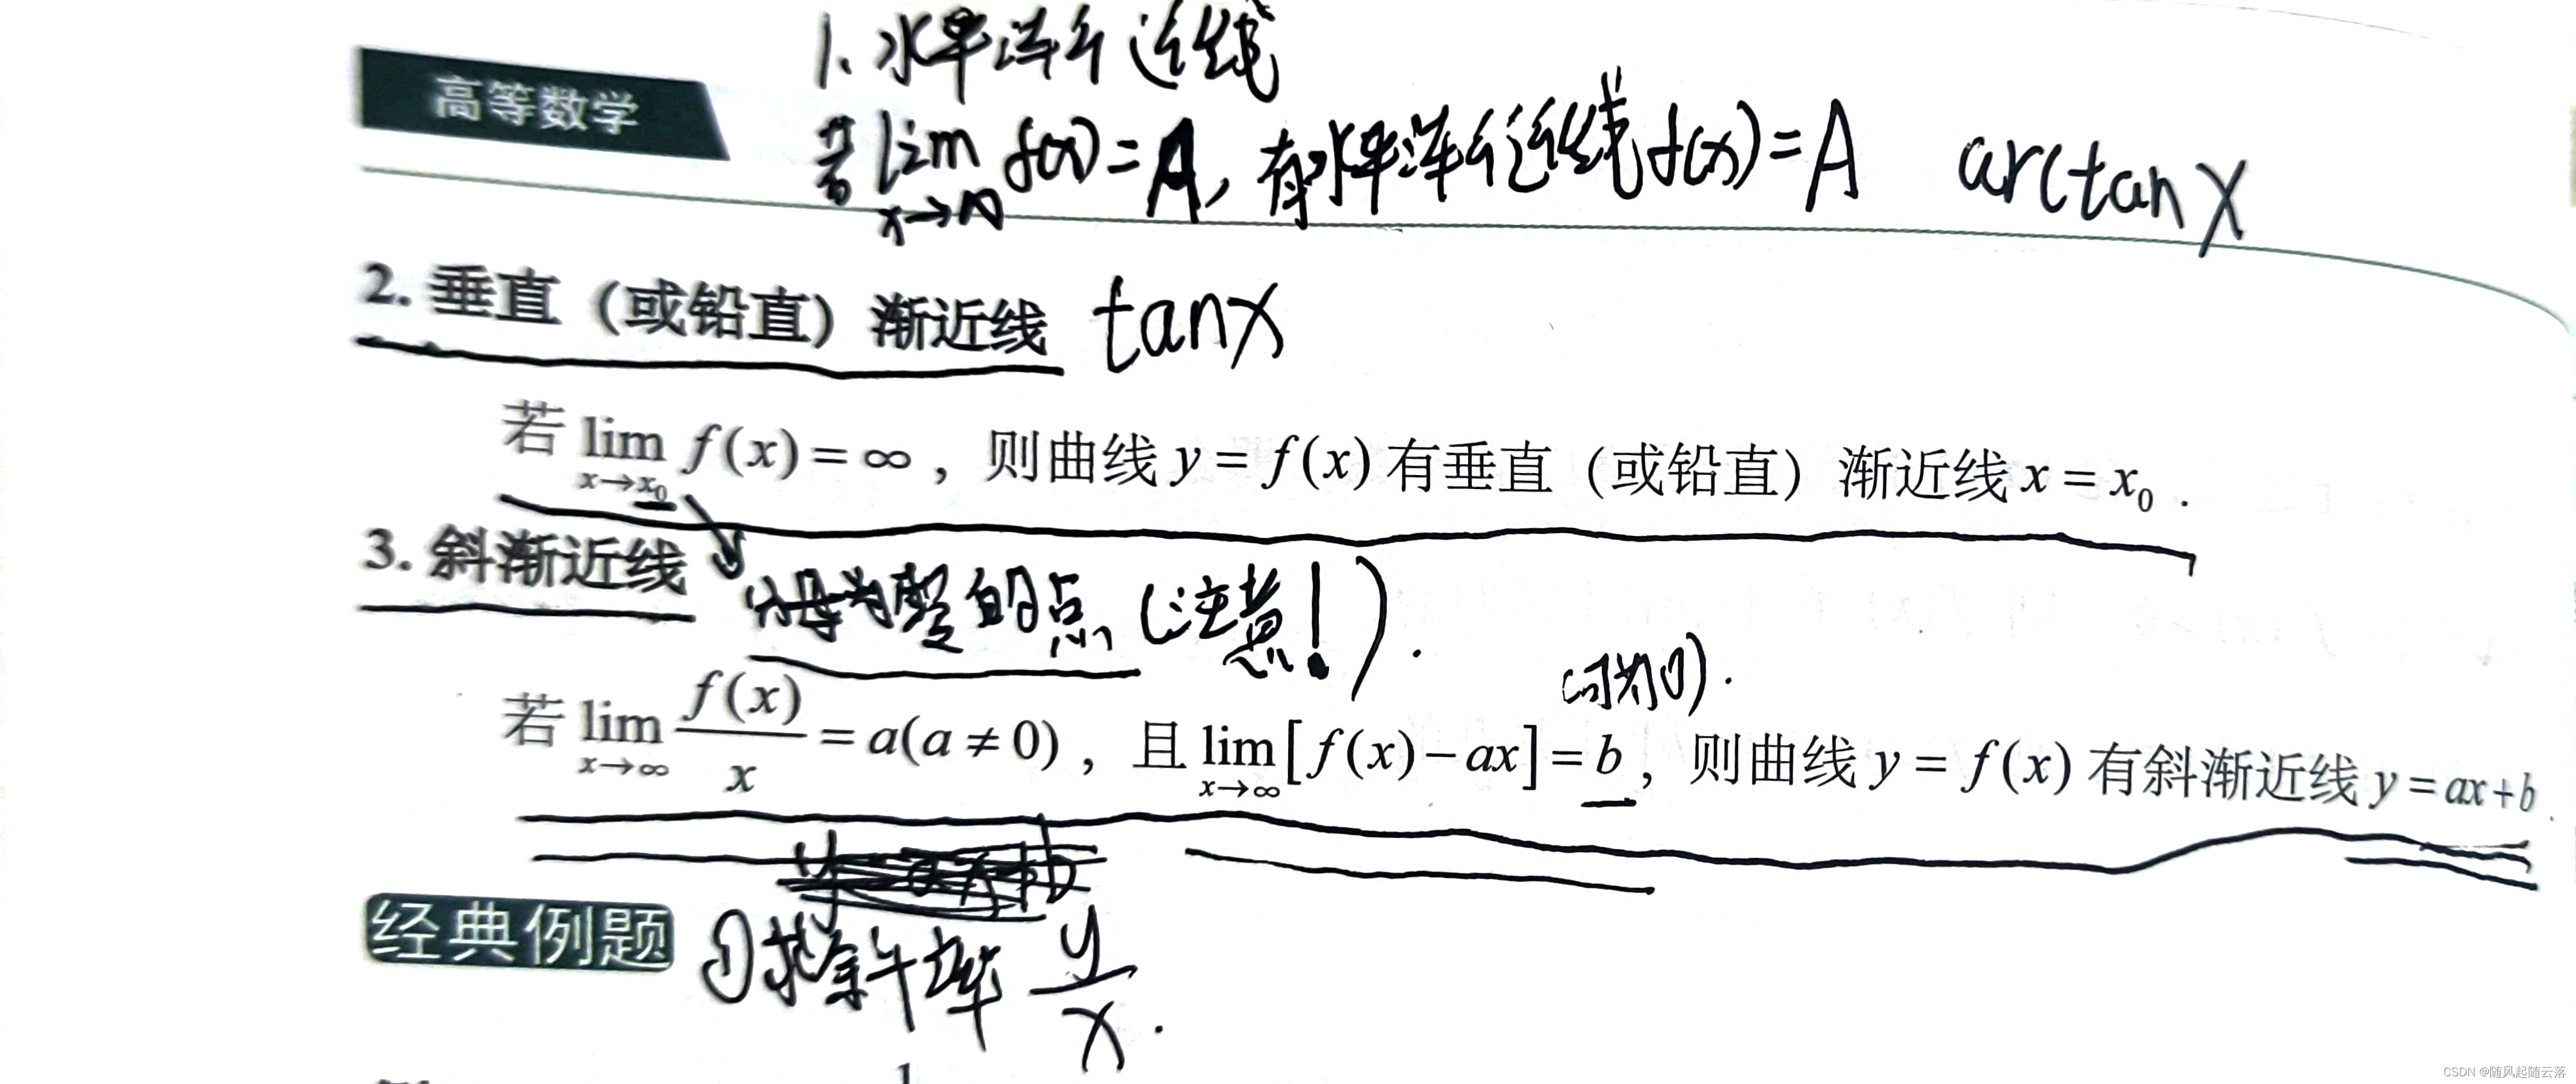 1. 水平渐近线
高等数学
若 lim f(x)=A, 有水平渐近线 f(x)=A arctan x
x→∞
2. 垂直（或铅直）渐近线 tan x
若 lim f(x)=∞，则曲线 y=f(x) 有垂直（或铅直）渐近线 x=x₀.
x→x₀
3. 斜渐近线
分母为零的点（注意！）.
(可为0).
若 lim f(x)/x = a(a≠0)，且 lim [f(x)−ax]=b，则曲线 y=f(x) 有斜渐近线 y=ax+b
x→∞ x→∞
经典例题 ①求斜率 y/x.
CSDN @随风起随云落